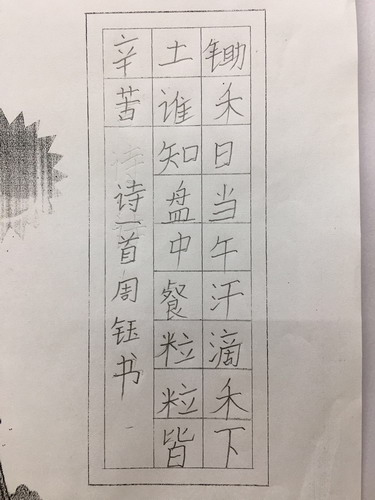 锄禾日当午汗滴禾下
土谁知盘中餐粒粒皆
辛苦
诗一首周钰书